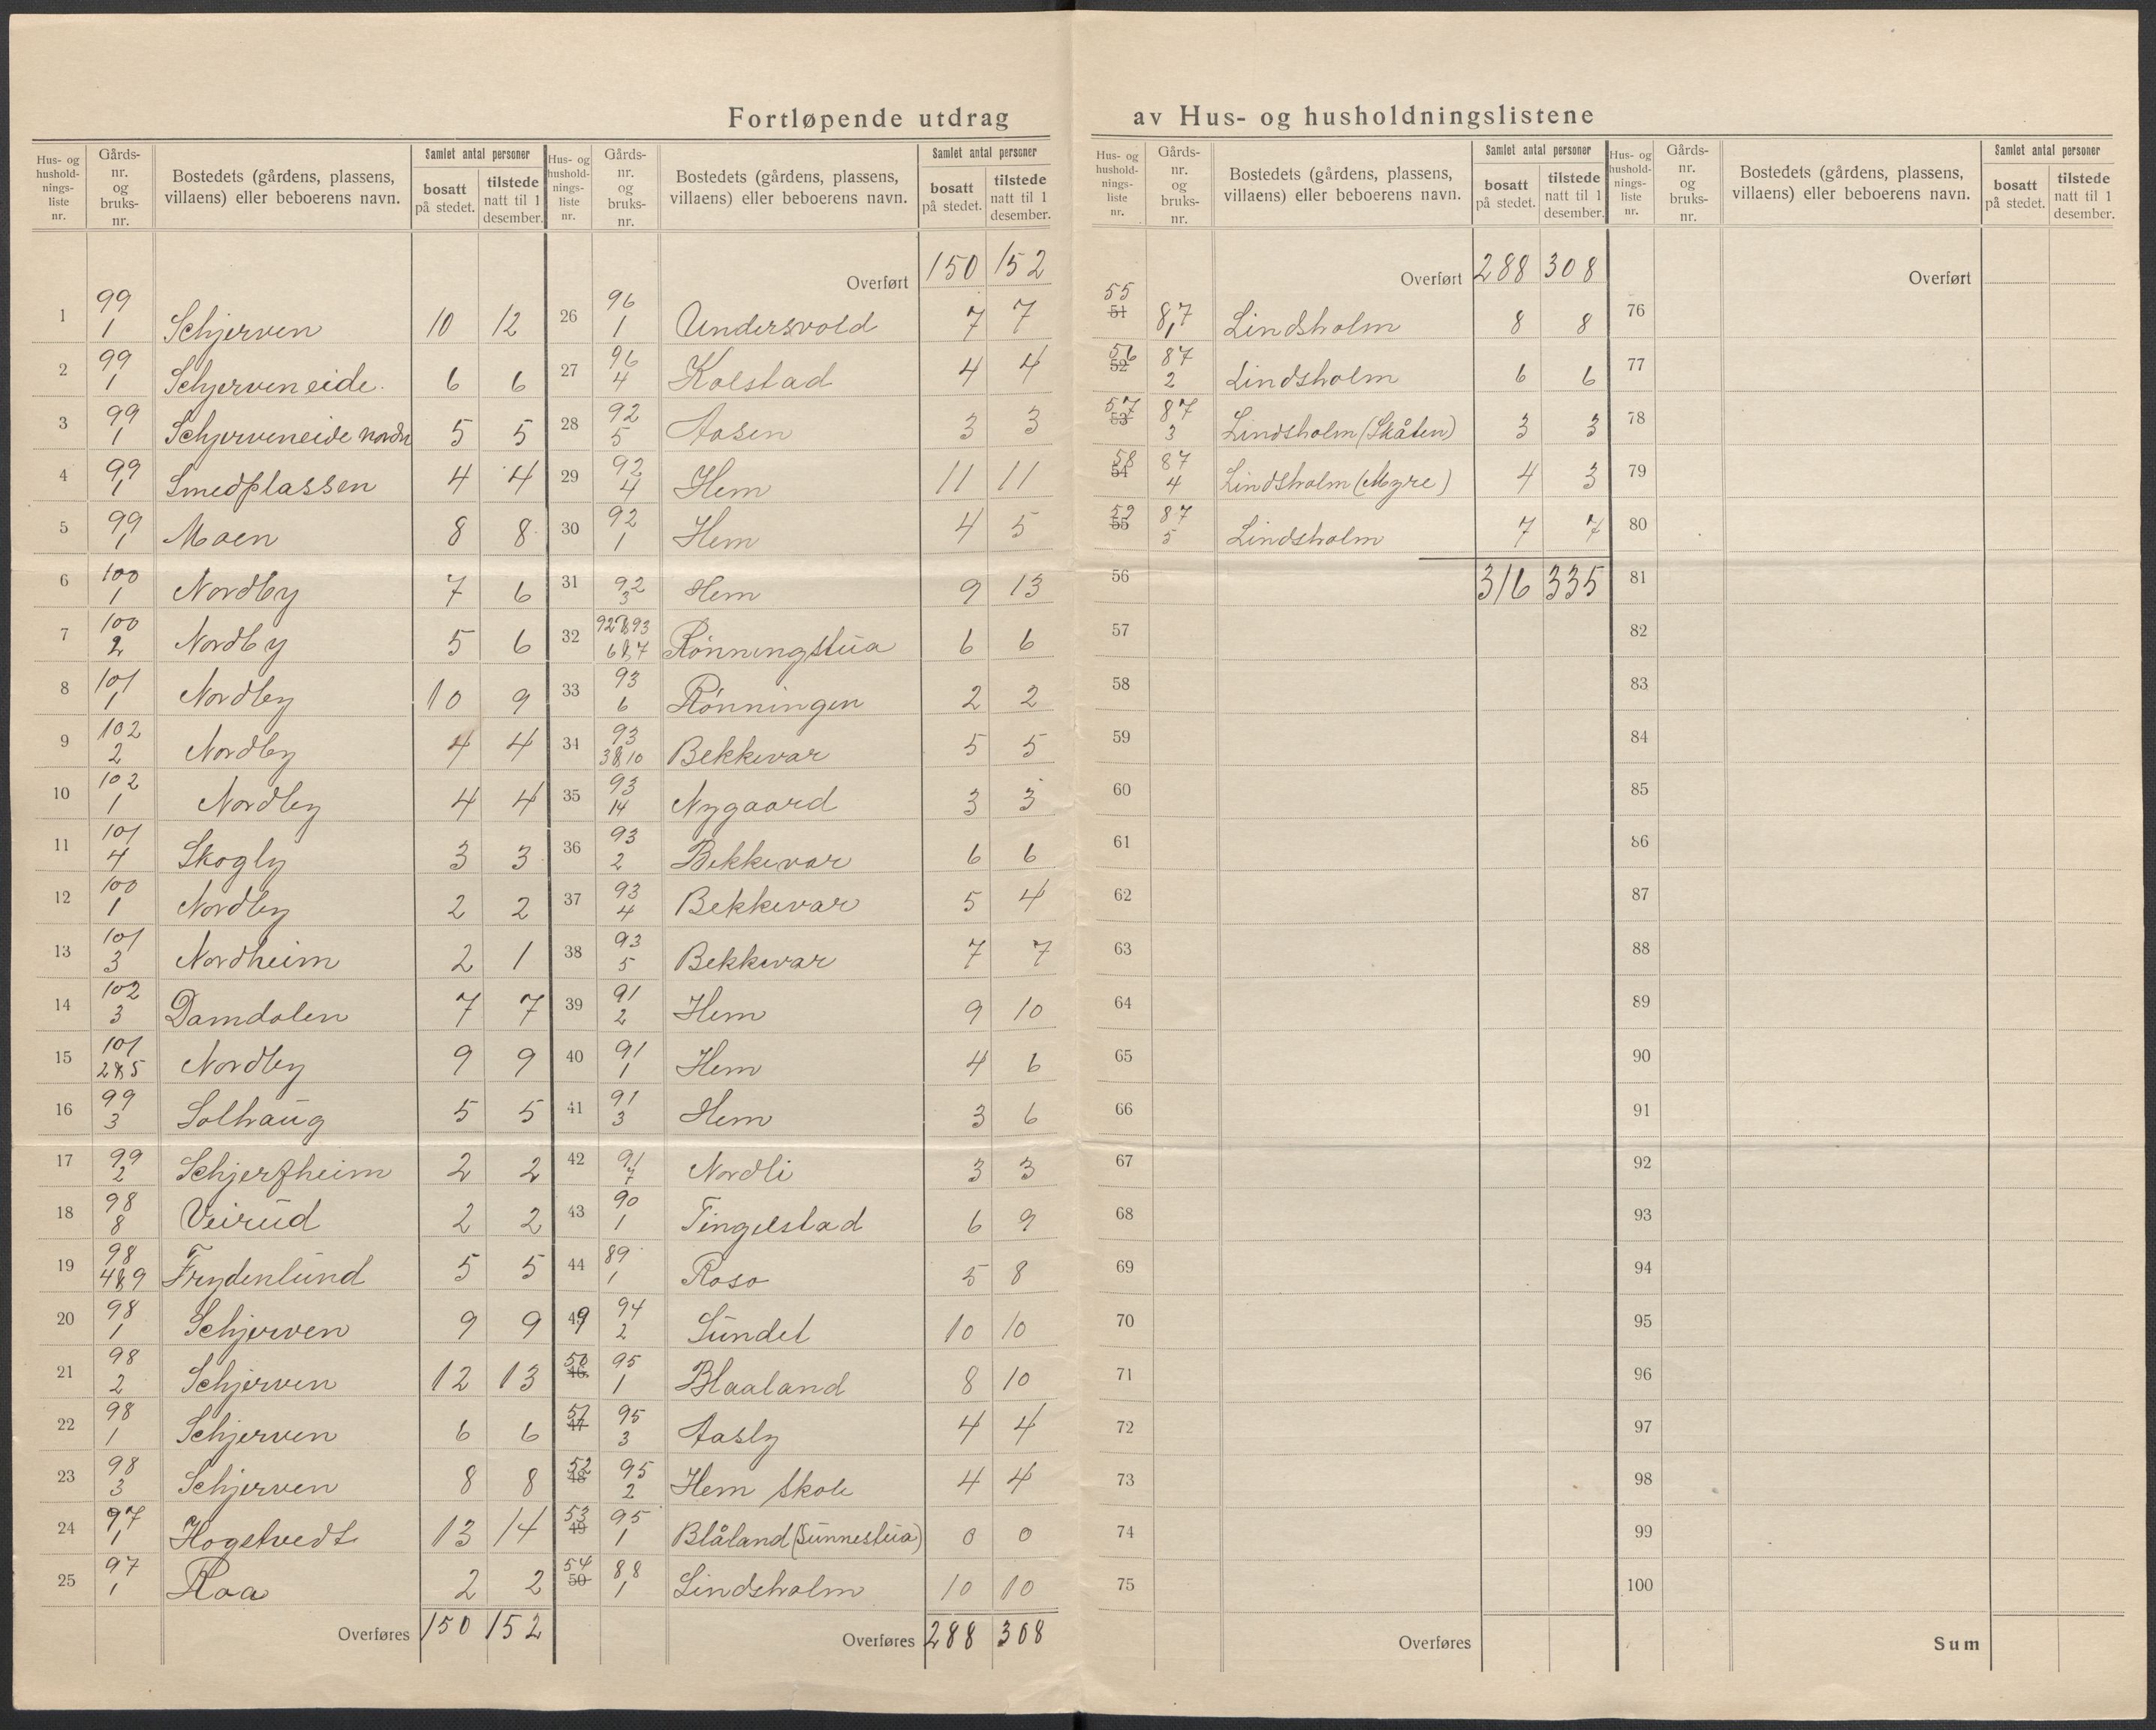 Fortløpende utdrag av Hus- og husholdningslistene
Hus- og husholdningsliste nr. | Gårds-nr. og bruks-nr. | Bostedets (gårdens, plassens, villaens) eller beboerens navn. | Samlet antal personer: bosatt på stedet. | tilstede natt til 1 desember.
1 | 99 1 | Schjerven | 10 | 12
2 | 99 1 | Schjerveneide | 6 | 6
3 | 99 1 | Schjerveneide nordre | 5 | 5
4 | 99 1 | Smedplassen | 4 | 4
5 | 99 1 | Moen | 8 | 8
6 | 100 1 | Nordby | 7 | 6
7 | 100 2 | Nordby | 5 | 6
8 | 101 1 | Nordby | 10 | 9
9 | 102 2 | Nordby | 4 | 4
10 | 102 1 | Nordby | 4 | 4
11 | 101 4 | Skogly | 3 | 3
12 | 100 1 | Nordby | 2 | 2
13 | 101 3 | Nordheim | 2 | 1
14 | 102 3 | Damdalen | 7 | 7
15 | 101 2&5 | Nordby | 9 | 9
16 | 99 3 | Solhaug | 5 | 5
17 | 99 2 | Schjerfheim | 2 | 2
18 | 98 8 | Veirud | 2 | 2
19 | 98 4&9 | Frydenlund | 5 | 5
20 | 98 1 | Schjerven | 9 | 9
21 | 98 2 | Schjerven | 12 | 13
22 | 98 1 | Schjerven | 6 | 6
23 | 98 3 | Schjerven | 8 | 8
24 | 97 1 | Hogstvedt | 13 | 14
25 | 97 1 | Roa | 2 | 2
Overføres | 150 | 152
Hus- og husholdningsliste nr. | Gårds-nr. og bruks-nr. | Bostedets (gårdens, plassens, villaens) eller beboerens navn. | Samlet antal personer: bosatt på stedet. | tilstede natt til 1 desember.
Overført | 150 | 152
26 | 96 1 | Undersvold | 7 | 7
27 | 96 4 | Kolstad | 4 | 4
28 | 92 5 | Aasen | 3 | 3
29 | 92 4 | Hem | 11 | 11
30 | 92 1 | Hem | 4 | 5
31 | 92 3 | Hem | 9 | 13
32 | 92&93 6&7 | Rønningstua | 6 | 6
33 | 93 6 | Rønningen | 2 | 2
34 | 93 3&10 | Bekkevar | 5 | 5
35 | 93 14 | Nygaard | 3 | 3
36 | 93 2 | Bekkevar | 6 | 6
37 | 93 4 | Bekkevar | 5 | 4
38 | 93 5 | Bekkevar | 7 | 7
39 | 91 2 | Hem | 9 | 10
40 | 91 1 | Hem | 4 | 6
41 | 91 3 | Hem | 3 | 6
42 | 91 7 | Nordli | 3 | 3
43 | 90 1 | Tingelstad | 6 | 9
44 | 89 1 | Roso | 5 | 8
49 | 94 2 | Sundet | 10 | 10
50 46 | 95 1 | Blaaland | 8 | 10
51 47 | 95 3 | Aasly | 4 | 4
52 48 | 95 2 | Hem skole | 4 | 4
53 49 | 95 1 | Blåland (Sunnestua) | 0 | 0
54 50 | 88 1 | Lindsholm | 10 | 10
Overføres | 288 | 308
Hus- og husholdningsliste nr. | Gårds-nr. og bruks-nr. | Bostedets (gårdens, plassens, villaens) eller beboerens navn. | Samlet antal personer: bosatt på stedet. | tilstede natt til 1 desember.
Overført | 288 | 308
55 51 | 87 1 | Lindsholm | 8 | 8
56 52 | 87 2 | Lindsholm | 6 | 6
57 53 | 87 3 | Lindsholm (Skåten) | 3 | 3
58 54 | 87 4 | Lindsholm (Myre) | 4 | 3
59 55 | 87 5 | Lindsholm | 7 | 7
56 | 316 | 335
57
58
59
60
61
62
63
64
65
66
67
68
69
70
71
72
73
74
75
Overføres
Hus- og husholdningsliste nr. | Gårds-nr. og bruks-nr. | Bostedets (gårdens, plassens, villaens) eller beboerens navn. | Samlet antal personer: bosatt på stedet. | tilstede natt til 1 desember.
Overført
76
77
78
79
80
81
82
83
84
85
86
87
88
89
90
91
92
93
94
95
96
97
98
99
100
Sum